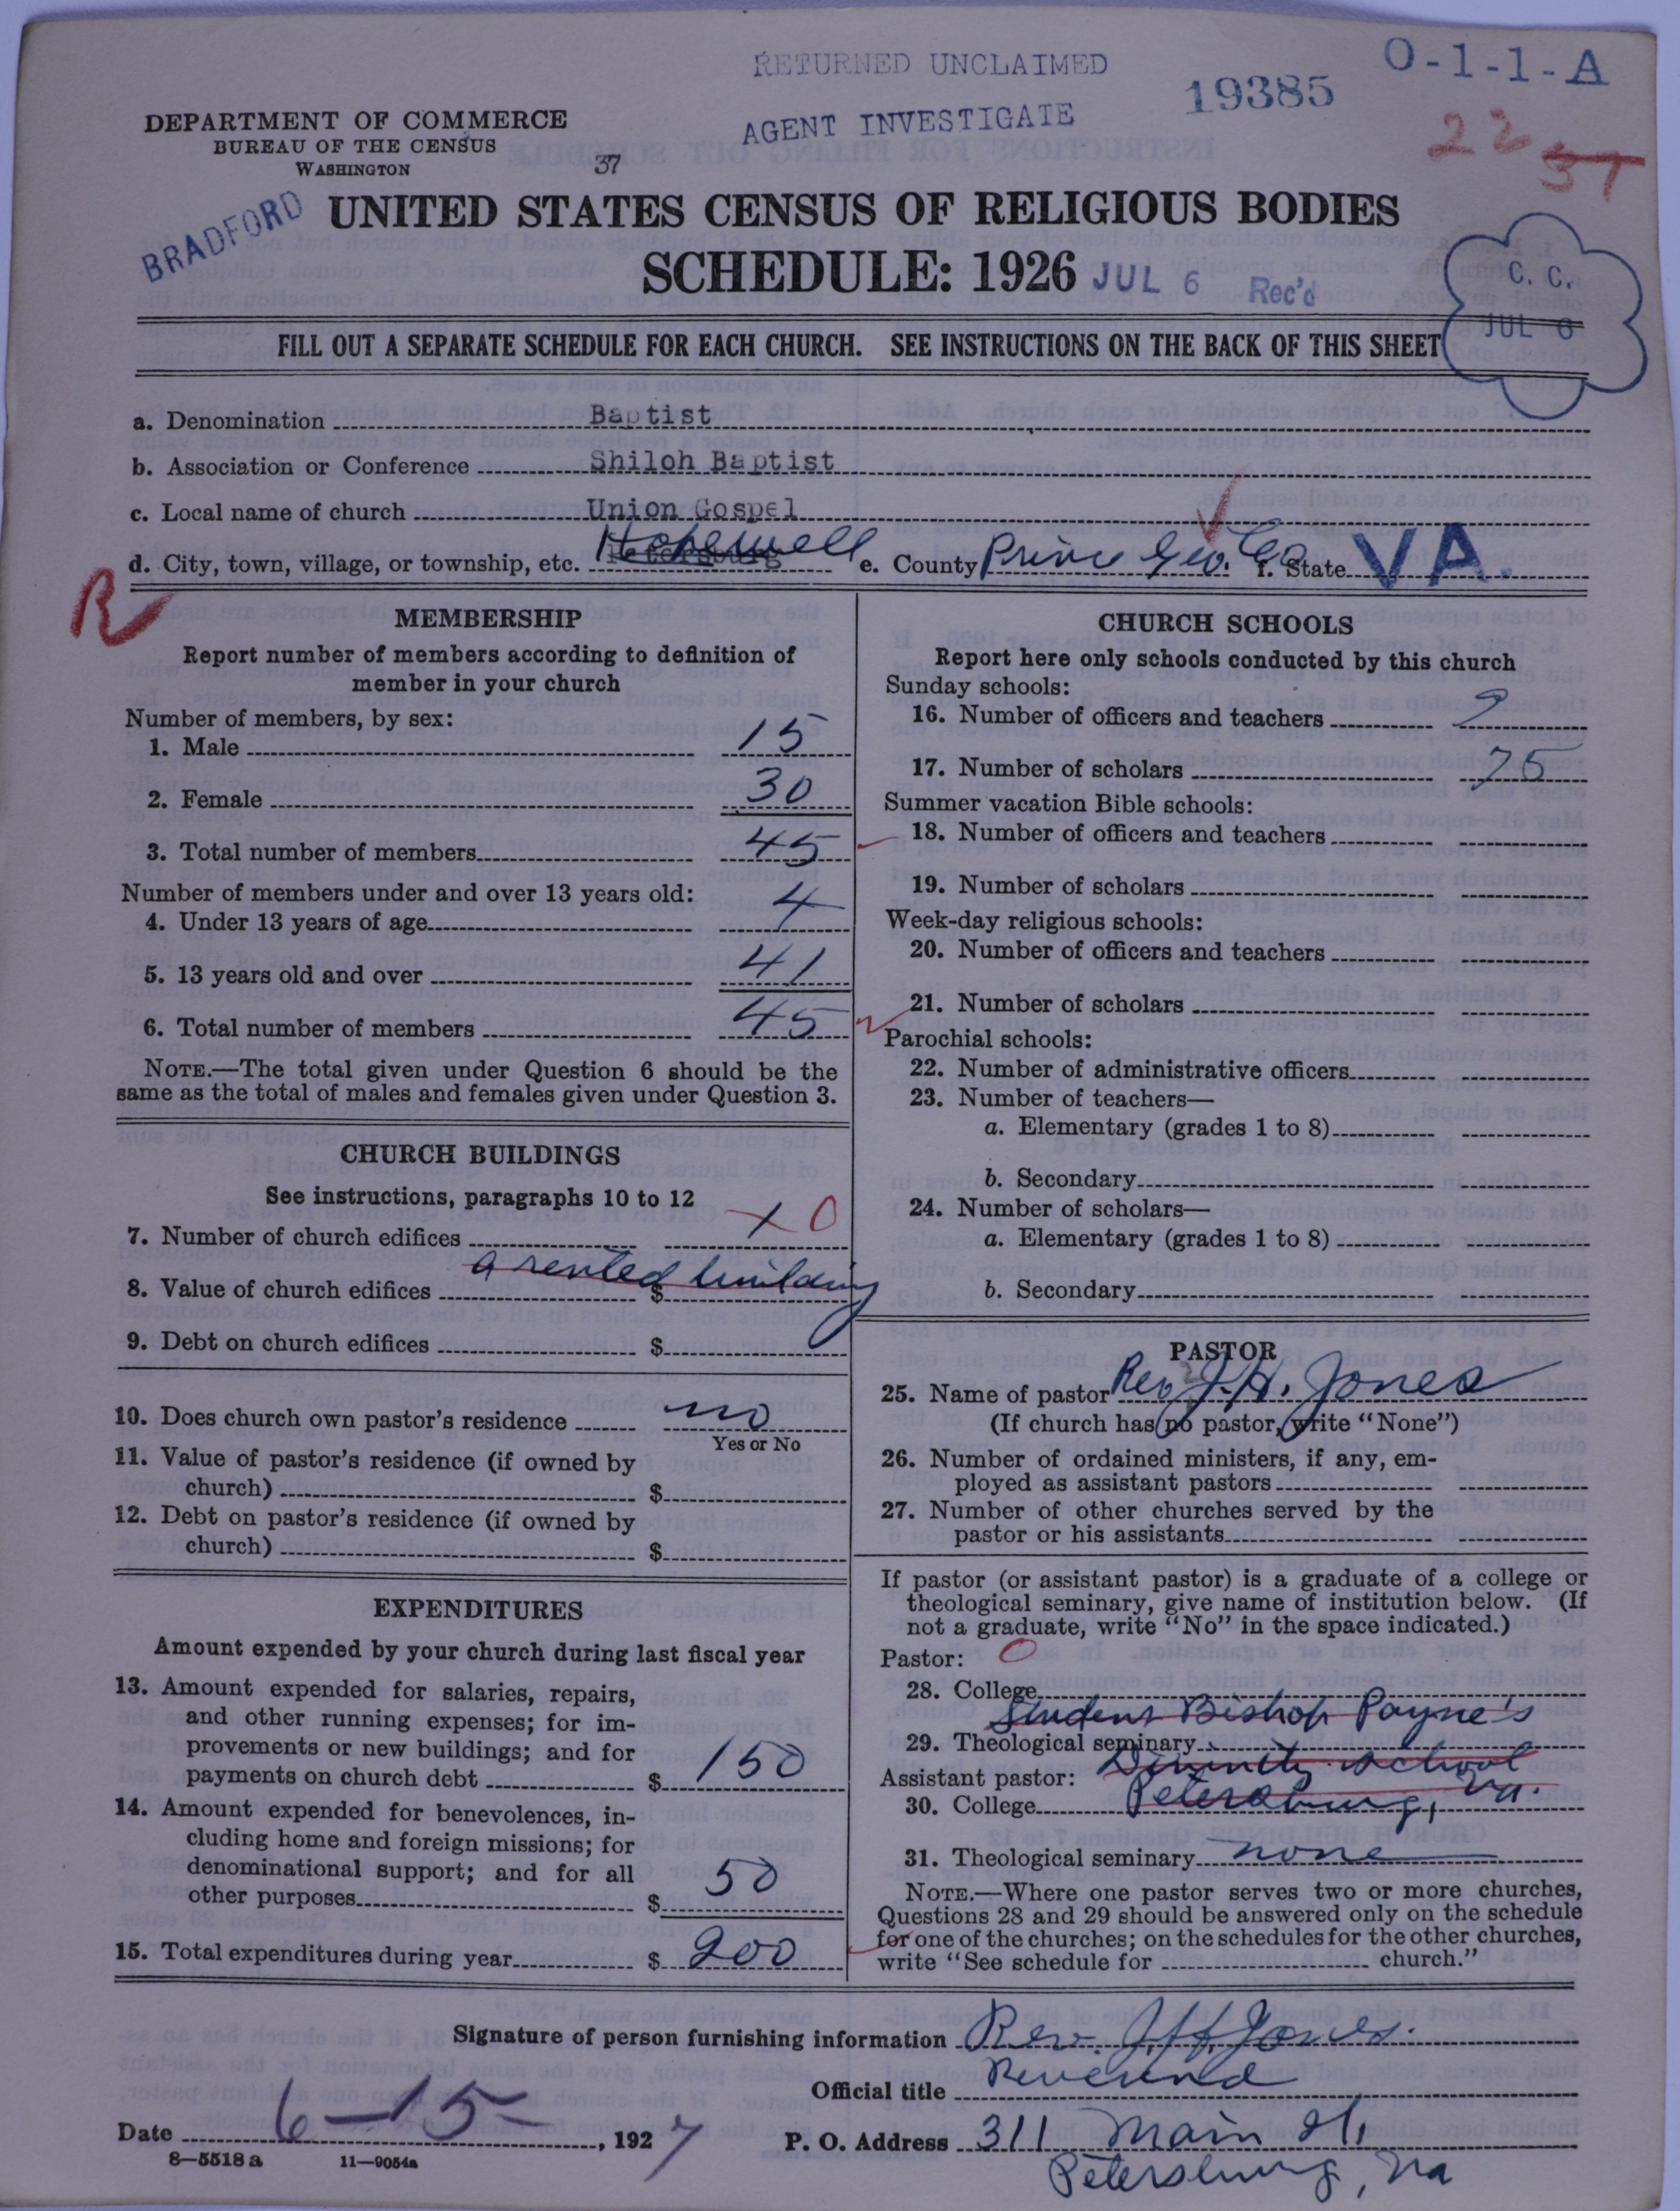 RETURNED UNCLAIMED
O-1-1-A
19385
AGENT INVESTIGATE
DEPARTMENT OF COMMERCE
BUREAU OF THE CENSUS
WASHINGTON
37
BRADFORD
UNITED STATES CENSUS OF RELIGIOUS BODIES
SCHEDULE: 1926 JUL 6 Rec'd
C. C.
JUL 6
FILL OUT A SEPARATE SCHEDULE FOR EACH CHURCH. SEE INSTRUCTIONS ON THE BACK OF THIS SHEET
a. Denomination Baptist
b. Association or Conference Shiloh Baptist
c. Local name of church Union Gospel
d. City, town, village, or township, etc. Petersburg Hopewell e. County Prince Geo. Co f. State VA.
R
MEMBERSHIP
Report number of members according to definition of
member in your church
Number of members, by sex:
1. Male 15
2. Female 30
3. Total number of members 45
Number of members under and over 13 years old:
4. Under 13 years of age 4
5. 13 years old and over 41
6. Total number of members 45
NOTE.—The total given under Question 6 should be the
same as the total of males and females given under Question 3.
CHURCH BUILDINGS
See instructions, paragraphs 10 to 12
7. Number of church edifices 1 0
a rented building
8. Value of church edifices $
9. Debt on church edifices $
10. Does church own pastor's residence no
Yes or No
11. Value of pastor's residence (if owned by
church) $
12. Debt on pastor's residence (if owned by
church) $
EXPENDITURES
Amount expended by your church during last fiscal year
13. Amount expended for salaries, repairs,
and other running expenses; for im-
provements or new buildings; and for
payments on church debt $ 150
14. Amount expended for benevolences, in-
cluding home and foreign missions; for
denominational support; and for all
other purposes $ 50
15. Total expenditures during year $ 200
CHURCH SCHOOLS
Report here only schools conducted by this church
Sunday schools:
16. Number of officers and teachers 9
17. Number of scholars 75
Summer vacation Bible schools:
18. Number of officers and teachers
19. Number of scholars
Week-day religious schools:
20. Number of officers and teachers
21. Number of scholars
Parochial schools:
22. Number of administrative officers
23. Number of teachers—
a. Elementary (grades 1 to 8)
b. Secondary
24. Number of scholars—
a. Elementary (grades 1 to 8)
b. Secondary
PASTOR
25. Name of pastor Rev J. H. Jones
(If church has no pastor, write "None")
26. Number of ordained ministers, if any, em-
ployed as assistant pastors
27. Number of other churches served by the
pastor or his assistants
If pastor (or assistant pastor) is a graduate of a college or
theological seminary, give name of institution below. (If
not a graduate, write "No" in the space indicated.)
Pastor: O
28. College
Student Bishop Payne's
29. Theological seminary
Divinity school
Assistant pastor:
30. College Petersburg, Va.
31. Theological seminary none
NOTE.—Where one pastor serves two or more churches,
Questions 28 and 29 should be answered only on the schedule
for one of the churches; on the schedules for the other churches,
write "See schedule for church."
Signature of person furnishing information Rev. J. H. Jones.
Official title Reverend
Date 6-15-, 1927
P. O. Address 311 Main St.
Petersburg, Va
8—5518a 11—9054a